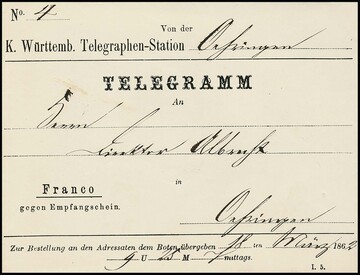 No. 4
Von der
K. Württemb. Telegraphen-Station Oehringen
TELEGRAMM
An
Herrn
Direktor Albrecht
in
Franco
gegen Empfangschein.
Oehringen
Zur Bestellung an den Adressaten dem Boten übergeben ten März 186
9 U 15 M mittags.
I. 5.